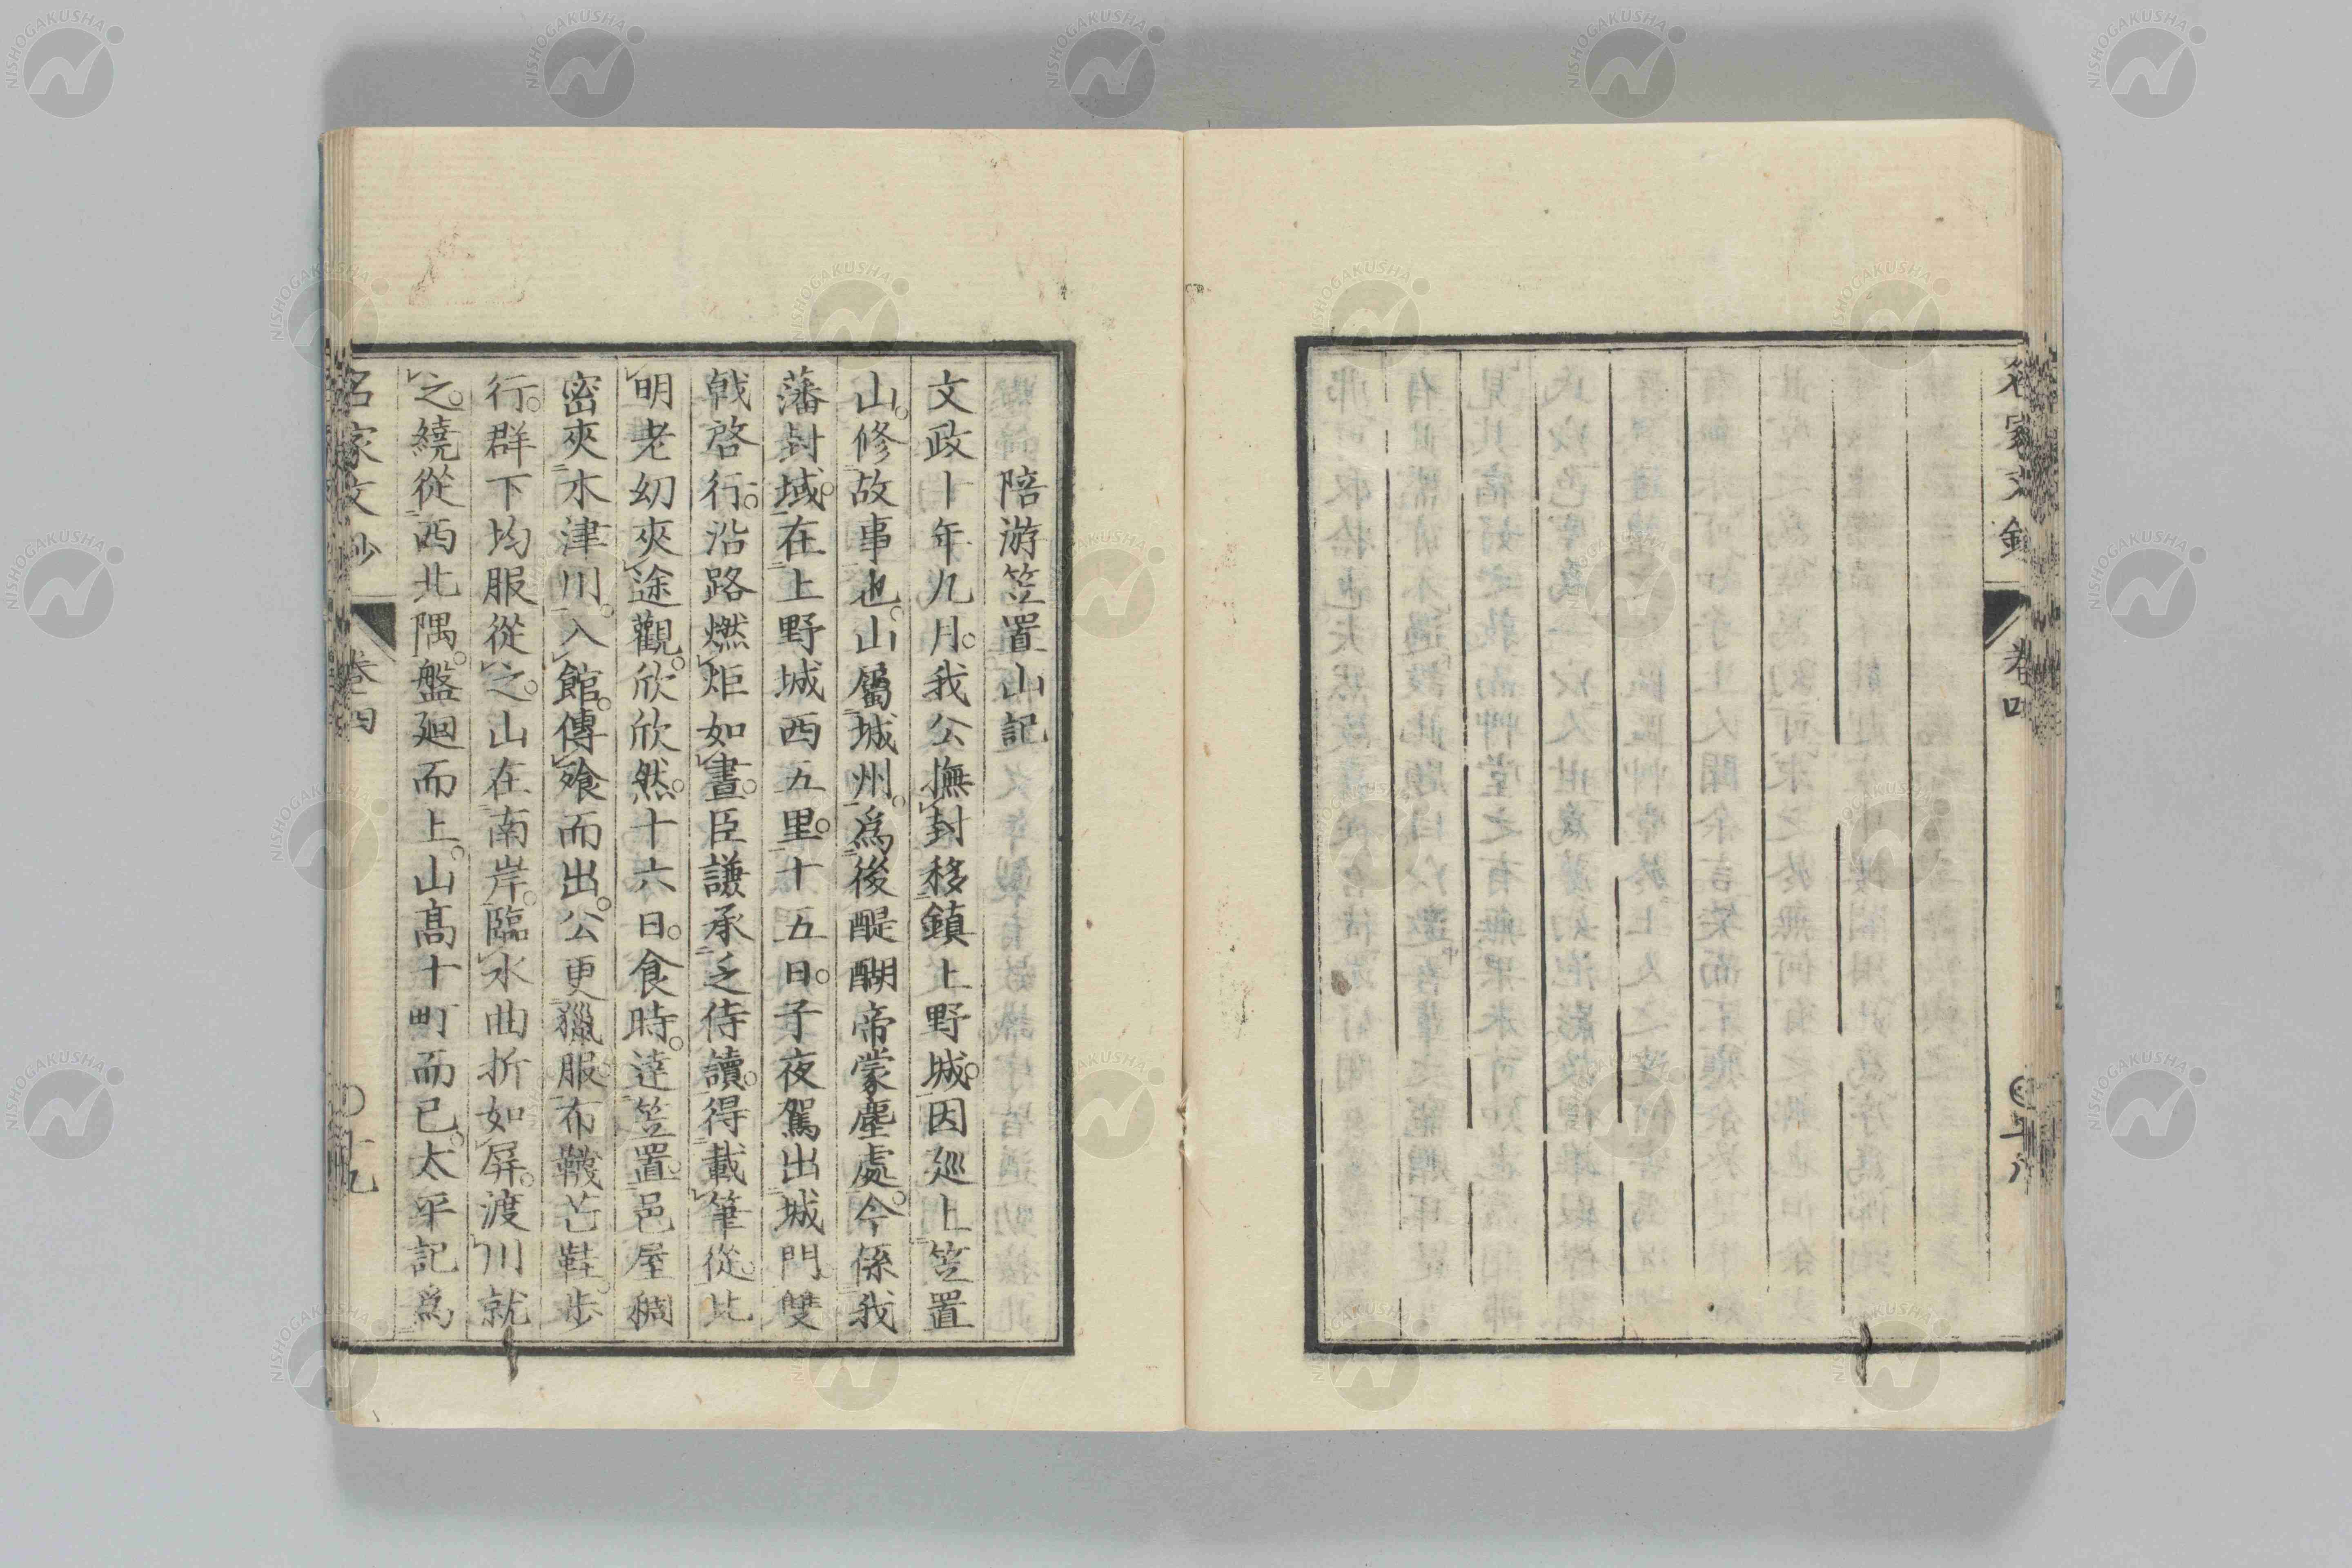 名家文鈔
卷四
陪游笠置山記
文政十年九月。我公撫封移鎮上野城。因廵上笠置
山。修故事也。山屬城州。爲後醍醐帝蒙塵處。今係我
藩封域。在上野城西五里。十五日。子夜駕出城門。雙
戟啓行。沿路燃炬如晝。臣謙承乏侍讀。得載筆從。比
明老幼夾途觀。欣欣然。十六日。食時。達笠置。邑屋稠
密夾木津川。入館。傳飱而出。公更獵服。布韈芒鞋。步
行。群下均服從之。山在南岸。臨水曲折如屏。渡川就
之。繞從西北隅。盤廻而上。山高十町而已。太平記爲
名家文鈔
卷四
〇十九
NISHOGAKUSHA